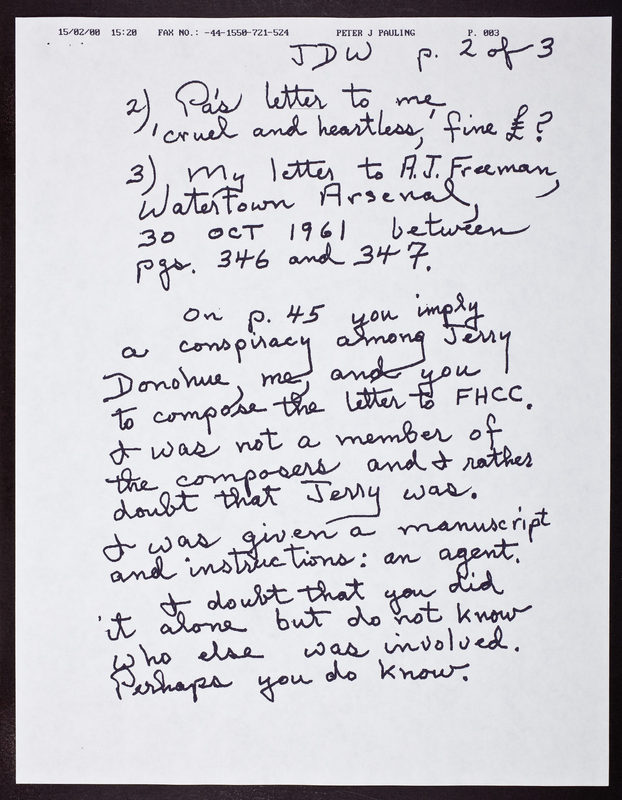 15/02/00 15:20 FAX NO.: -44-1550-721-524 PETER J PAULING P. 003
JDW p. 2 of 3
2) Pa's letter to me
'cruel and heartless,' fine £?
3) My letter to A.J. Freeman,
Watertown Arsenal,
30 OCT 1961 between
pgs. 346 and 347.
On p. 45 you imply
a conspiracy among Jerry
Donohue, me, and you
to compose the letter to FHCC.
I was not a member of
the composers and I rather
doubt that Jerry was.
I was given a manuscript
and instructions: an agent.
I doubt that you did
it alone but do not know
who else was involved.
Perhaps you do know.